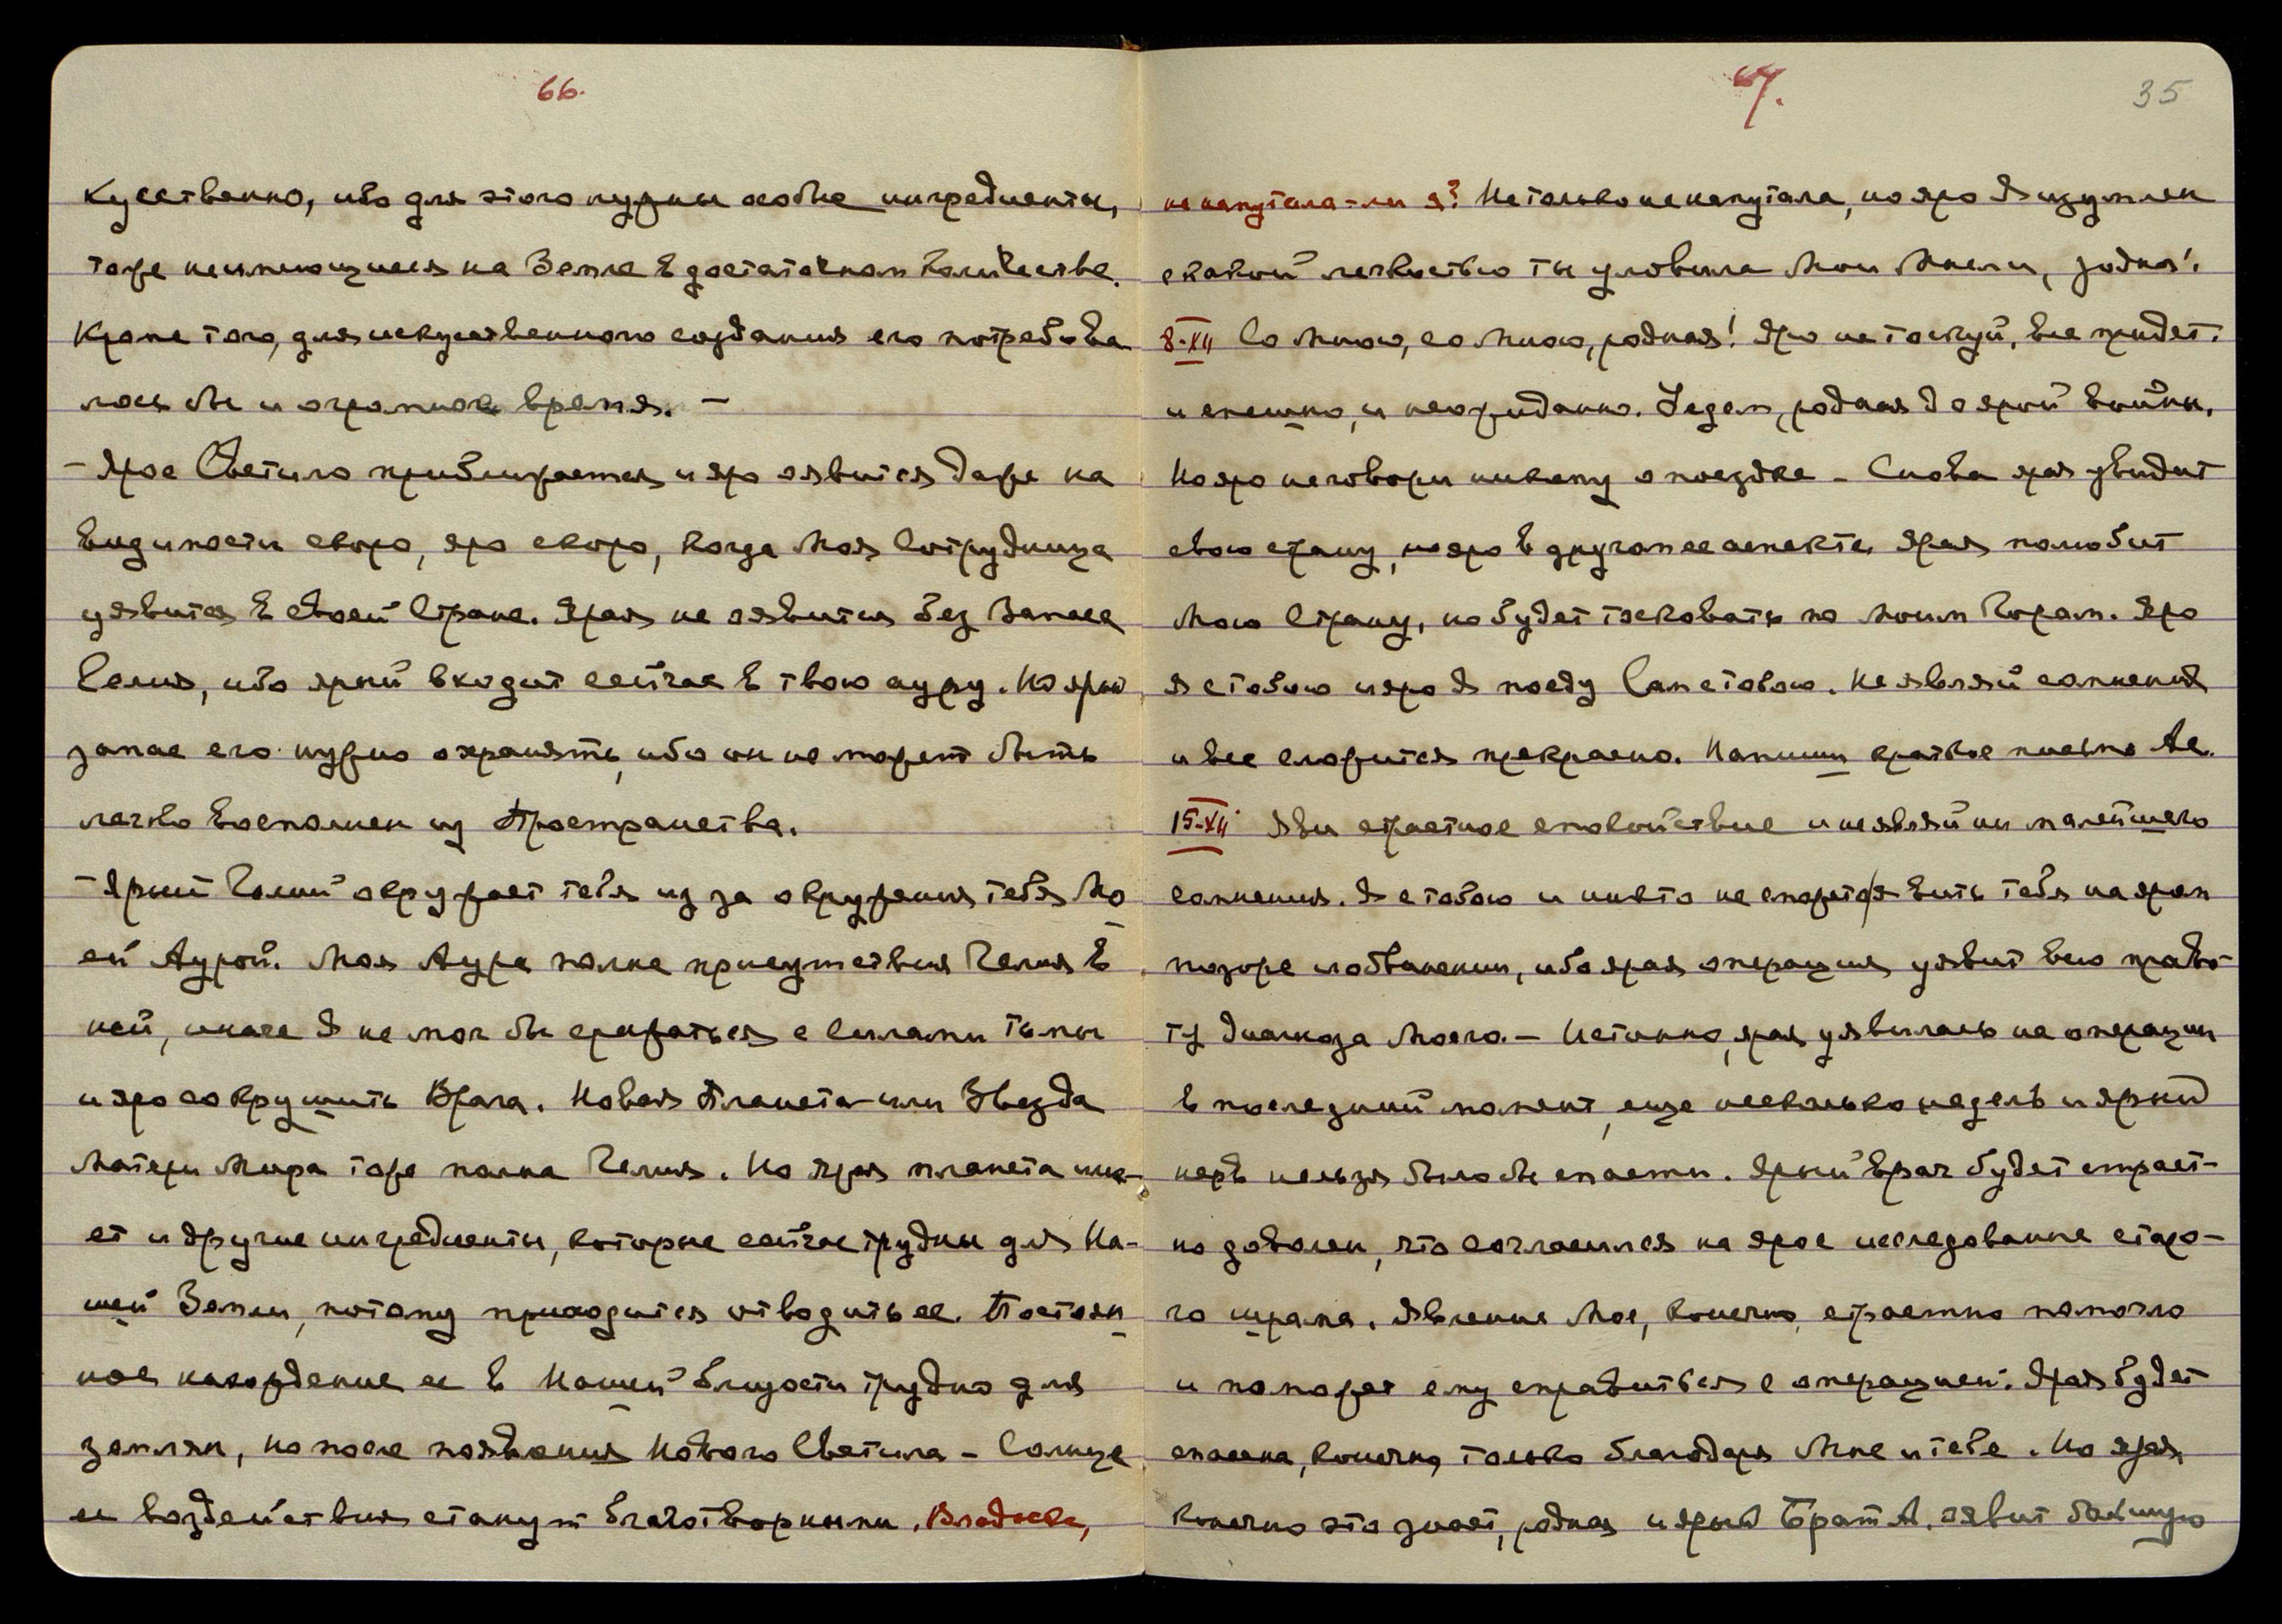 66.
кусственно, ибо для этого нужны особые ингредиенты,
тоже неимеющиеся на Земле в достаточном количестве.
Кроме того, для искусственного создания его потребова
лось бы и огромное время. —
— Ярое Светило приближается и яро явится даже на
видимости скоро, яро скоро, когда Моя Сотрудница
уявится в своей Стране. Ярая не явится без Запаса
Гелия, ибо ярый входит сейчас в твою ауру. Но ярый
запас его нужно охранять, ибо он не может быть
легко восполнен из Пространства.
— Ярый Гелий окружает тебя из за окружения тебя Мо
ей Аурой. Моя Аура полна присутствия Гелия в
ней, иначе Я не мог бы сражаться с силами тьмы
и яро сокрушить Врага. Новая Планета или Звезда
Матери Мира тоже полна Гелия. Но ярая планета име-
ет и другие ингредиенты, которые сейчас трудны для На-
шей Земли, потому приходится отводить ее. Постоян
ное нахождение ее в Нашей близости трудно для
землян, но после появления Нового Светила – Солнца
ее воздействия станут благотворными. Владыка,
67.
35
не напутала-ли я? Не только не напутала, но яро Я изумлен
с какой легкостью ты уловила Мои Мысли, родная!
8-XII Со Мною, со Мною, родная! Яро не тоскуй, все придет.
и спешно, и неожиданно. Уедем, родная до ярой войны.
Но яро не говори никому о поездке – Снова ярая увидит
свою страну, но яро в другом ее аспекте. Ярая полюбит
Мою Страну, но будет тосковать по Моим Горам. Яро
Я с тобою и яро Я поеду Сам с тобою. Не являй сомнений
и все сложится прекрасно. Напиши краткое письмо Ас.
15-XII Яви страстное спокойствие и не являй ни малейшего
сомнения. Я с тобою и никто не сможет явить тебя на яром
позоре и обвинении, ибо ярая операция уявит всю право-
ту диагноза Моего. — Истинно, ярая уявилась на операции
в последний момент, еще несколько недель и ярый
нерв нельзя было бы спасти. Ярый врач будет страст-
но доволен, что согласился на ярое исследование старо-
го шрама. Явление Мое, конечно, страстно помогло
и поможет ему справиться с операцией. Ярая будет
спасена, конечно, только благодаря Мне и тебе. Но ярая,
конечно это знает, родная и ярый Брат А. явит большую